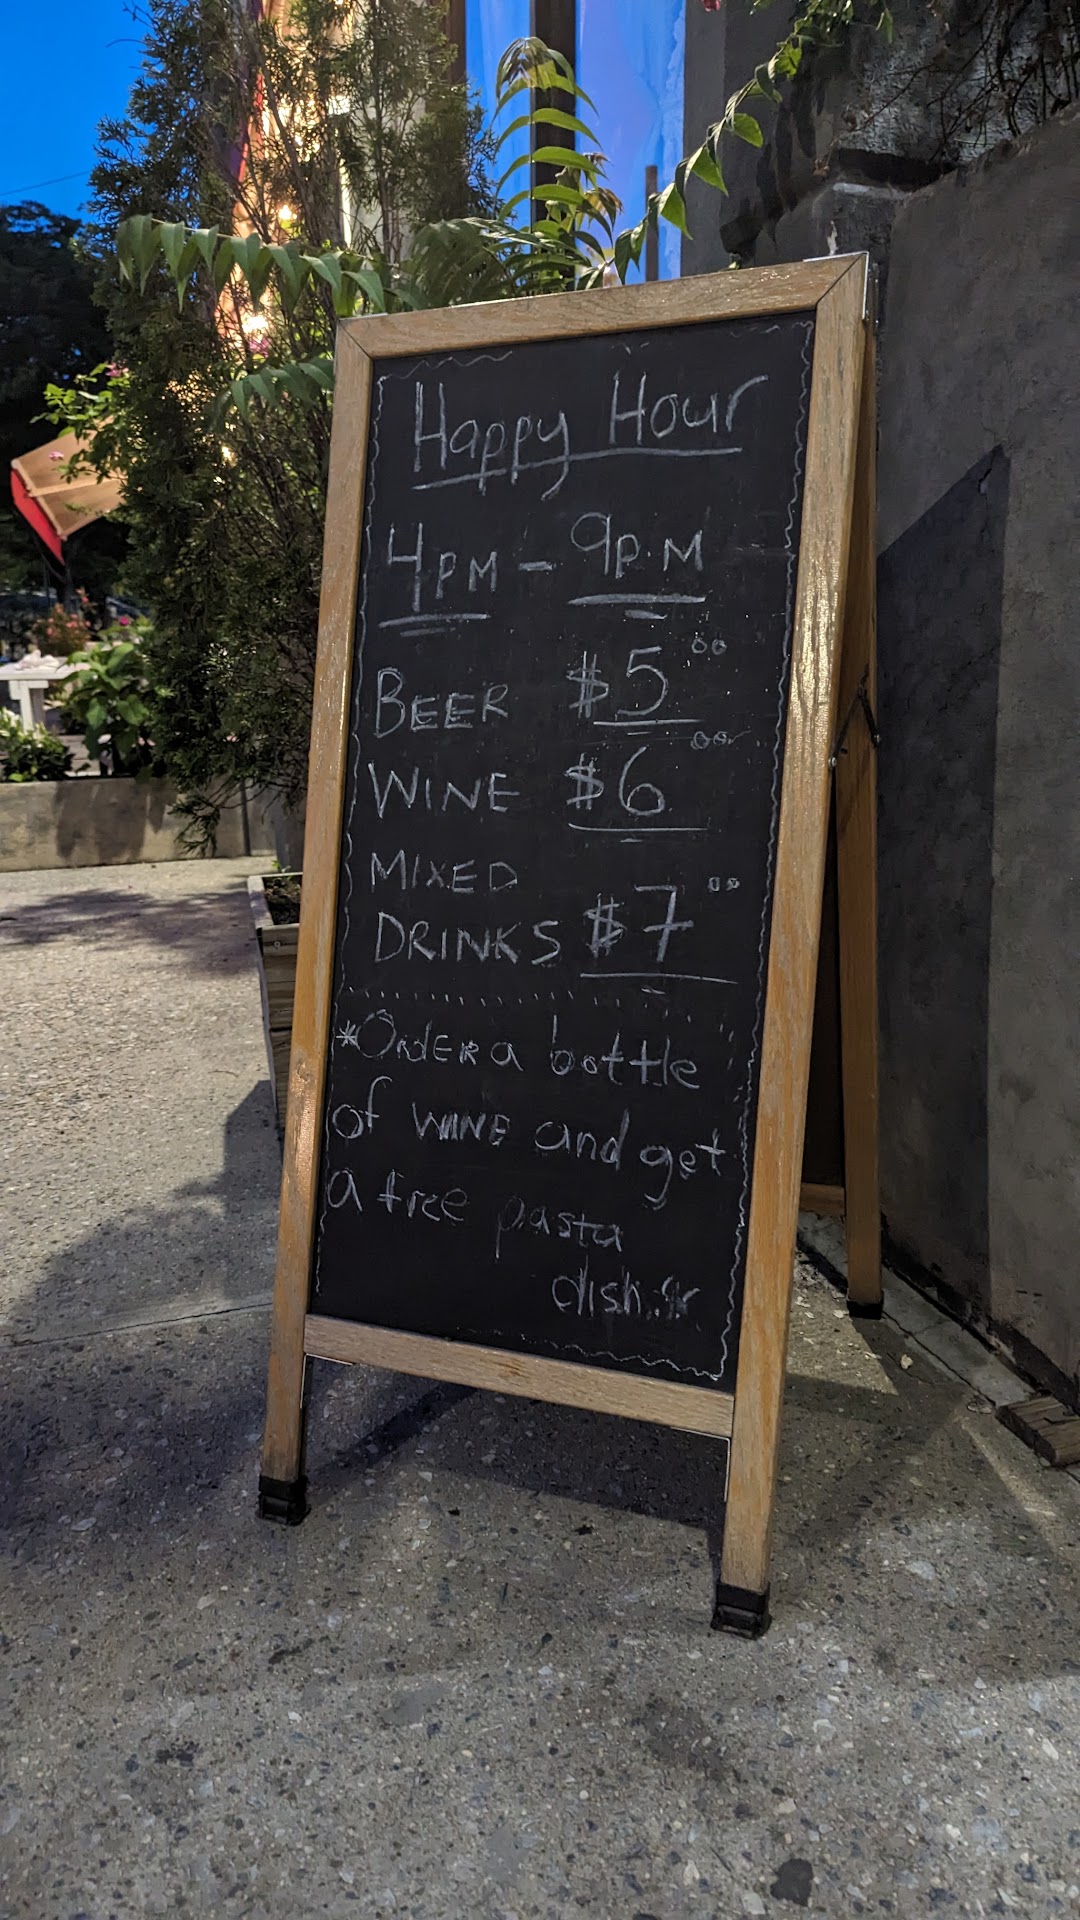 Happy Hour
4PM - 9P.M
BEER $5.00
WINE $6.00
MIXED
DRINKS $7.00
*Order a bottle
of WINE and get
a free pasta
dish.*